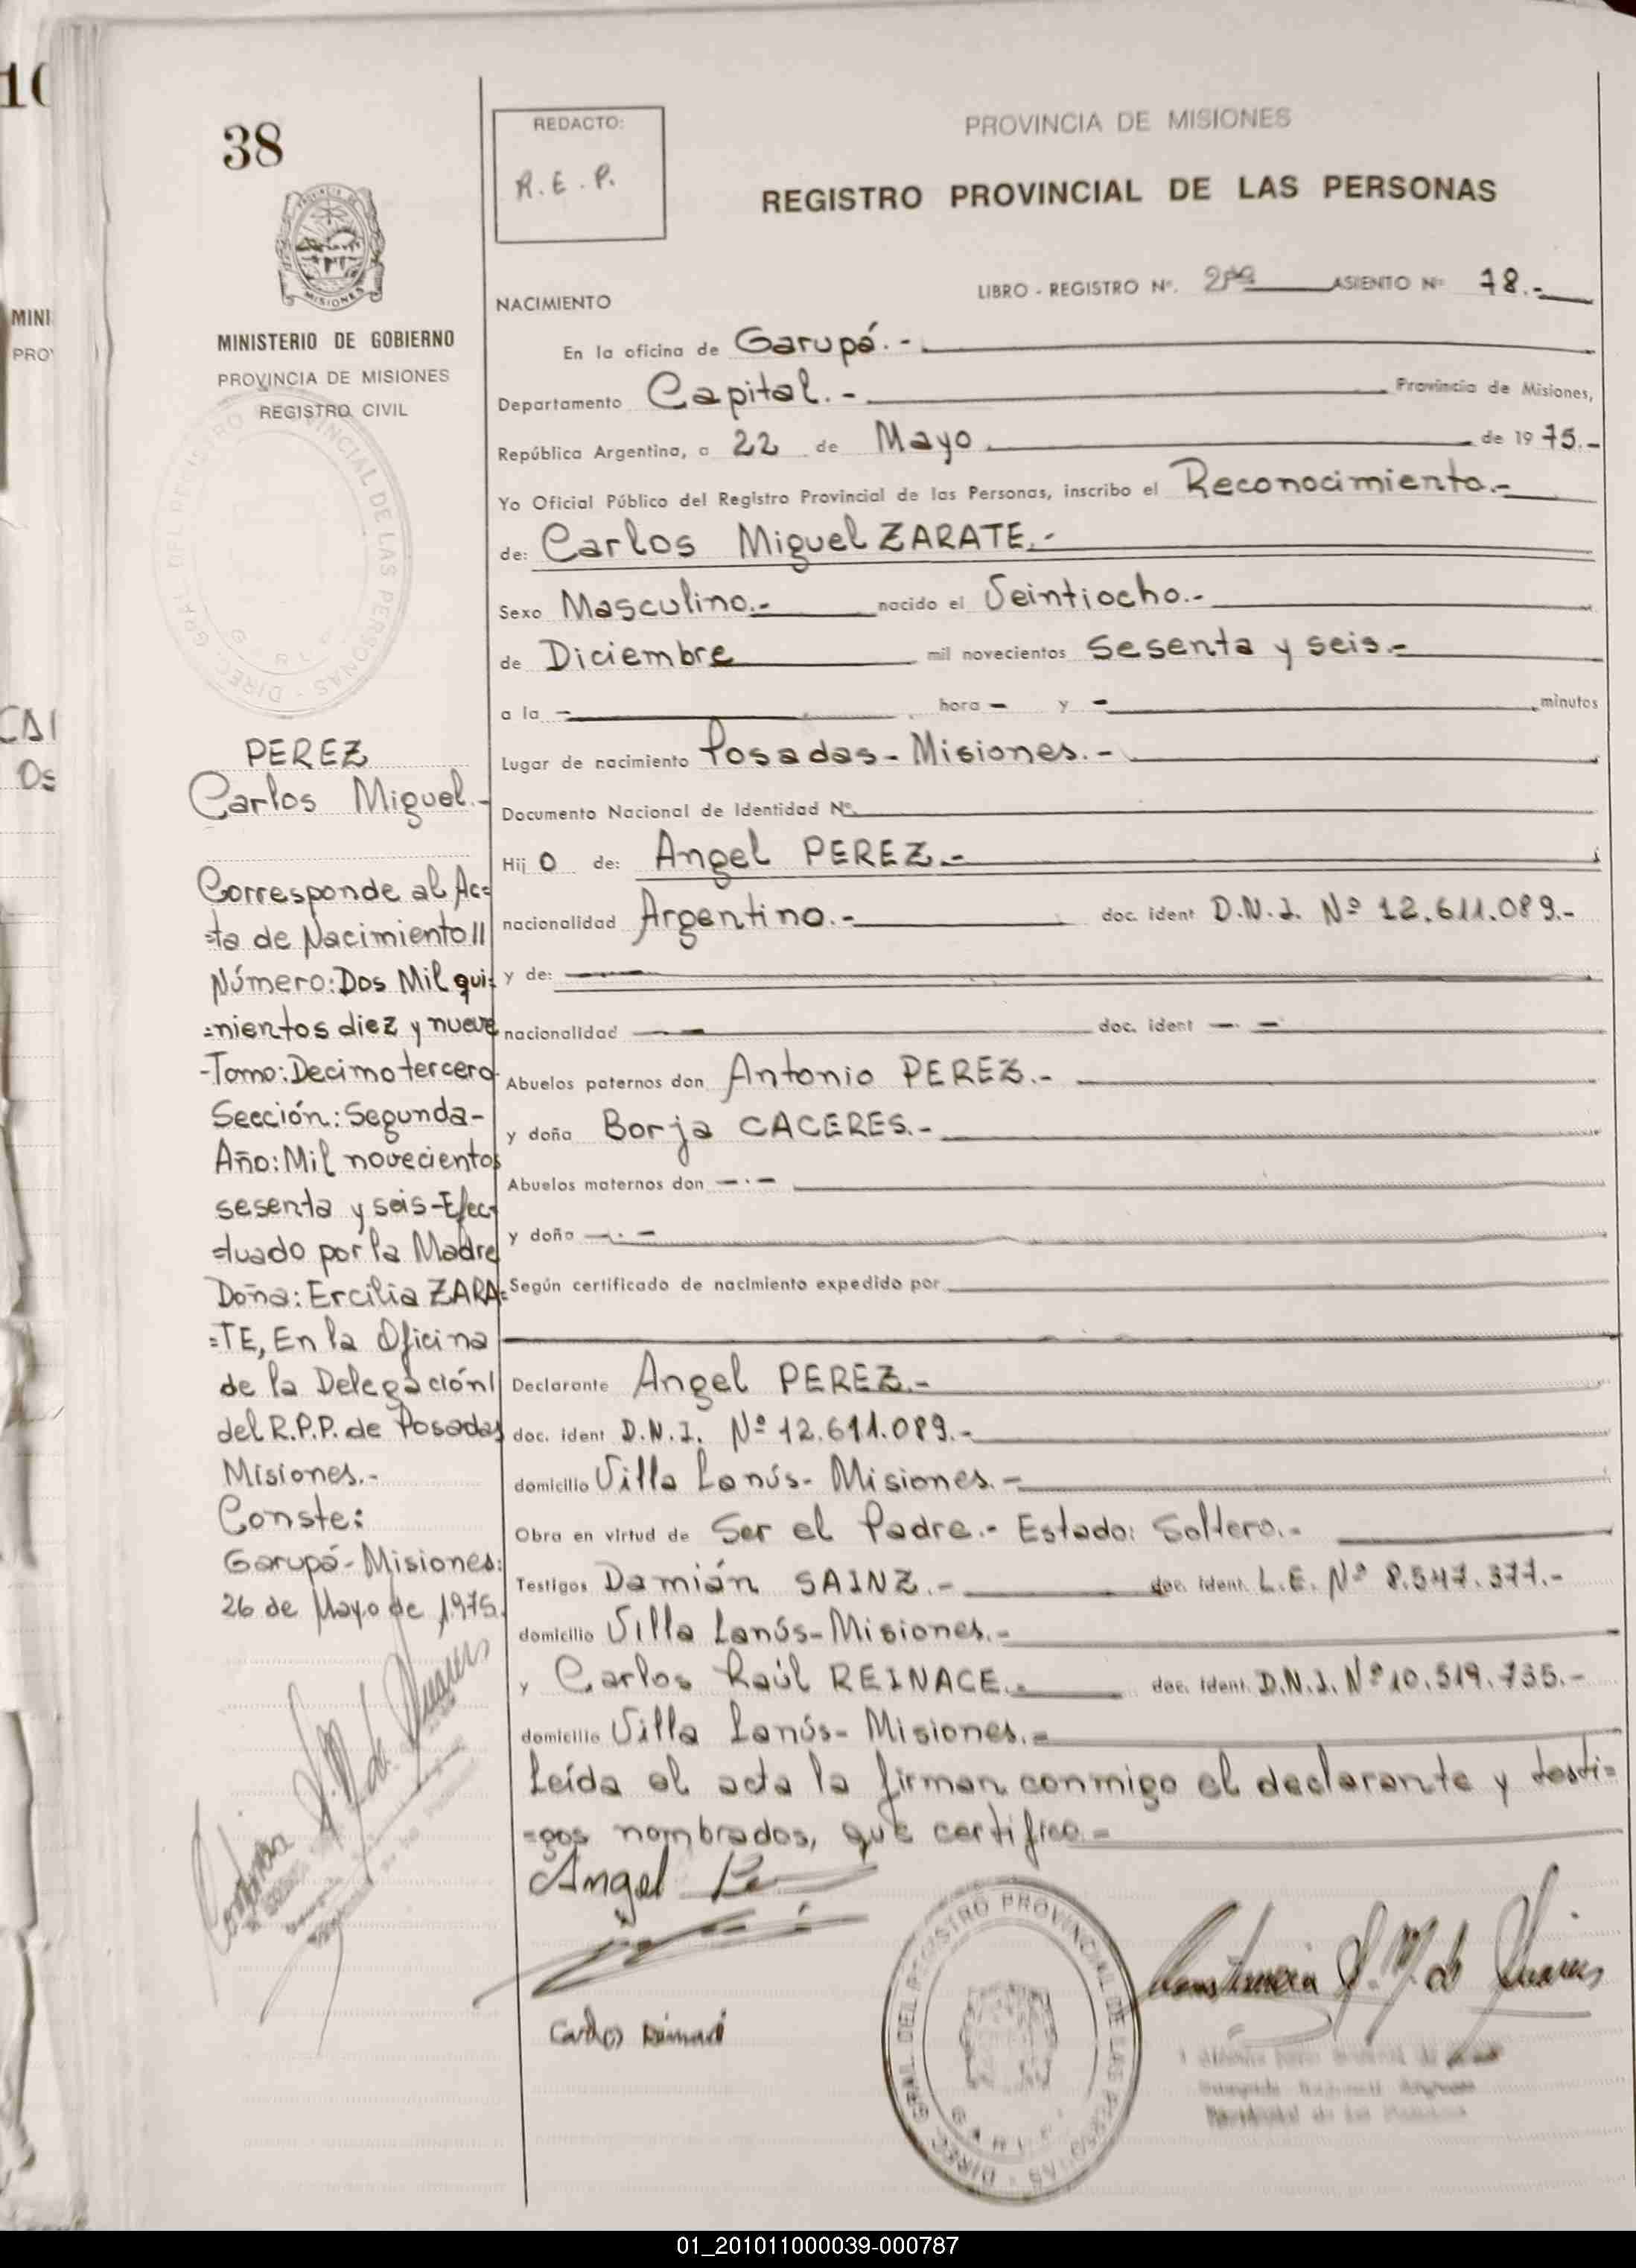 38
MINISTERIO DE GOBIERNO
PROVINCIA DE MISIONES
REGISTRO CIVIL
PEREZ
Carlos Miguel.-
Corresponde al Ac=
=ta de Nacimiento//
Número: Dos Mil qui=
=nientos diez y nueve
-Tomo: Decimo tercero-
Sección: Segunda-
Año: Mil novecientos
sesenta y seis-Efec-
-tuado por la Madre
Doña: Ercilia ZARA=
=TE, En la Oficina
de la Delegación/
del R.P.P. de Posadas
Misiones.-
Conste:
Garupá-Misiones:
26 de Mayo de 1975.
REDACTO:
R.E.P.
PROVINCIA DE MISIONES
REGISTRO PROVINCIAL DE LAS PERSONAS
LIBRO - REGISTRO Nº. ASIENTO Nº 78.-
NACIMIENTO
En la oficina de Garupá.-
Departamento Capital.- Provincia de Misiones,
República Argentina, a 22 de Mayo de 1975.-
Yo Oficial Público del Registro Provincial de las Personas, inscribo el Reconocimiento.-
de: Carlos Miguel ZARATE.-
Sexo Masculino.- nacido el Veintiocho.-
de Diciembre mil novecientos Sesenta y seis.-
a la - hora - y - minutos
Lugar de nacimiento Posadas-Misiones.-
Documento Nacional de Identidad Nº
Hij O de: Angel PEREZ.-
nacionalidad Argentino.- doc. ident D.N.I. Nº 12.611.089.-
y de:
nacionalidad doc. ident
Abuelos paternos don Antonio PEREZ.-
y doña Borja CACERES.-
Abuelos maternos don -.-
y doña -.-
Según certificado de nacimiento expedido por
Declarante Angel PEREZ.-
doc. ident D.N.I. Nº 12.611.089.-
domicilio Villa Lanús-Misiones.-
Obra en virtud de Ser el Padre.- Estado: Soltero.-
Testigos Damián SAINZ.- doc. ident. L.E. Nº 8.547.377.-
domicilio Villa Lanús-Misiones.-
y Carlos Raúl REINACE.- doc. ident. D.N.I. Nº 10.519.735.-
domicilio Villa Lanús-Misiones.=
Leída el acta la firman conmigo el declarante y testi=
=gos nombrados, que certifico.=
Angel
DIREC. GRAL. DEL REGISTRO PROVINCIAL DE LAS PERSONAS
01_201011000039-000787